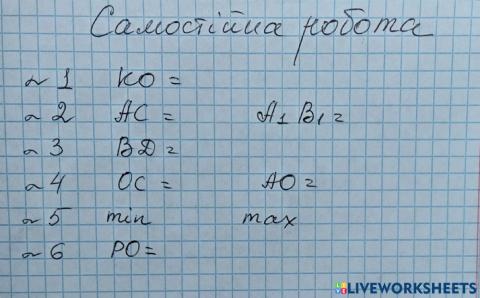 Самостійна робота
~ 1 KO =
~ 2 AC = A₁B₁ =
~ 3 BD =
~ 4 OC = AO =
~ 5 min max
~ 6 PO =
LIVEWORKSHEETS